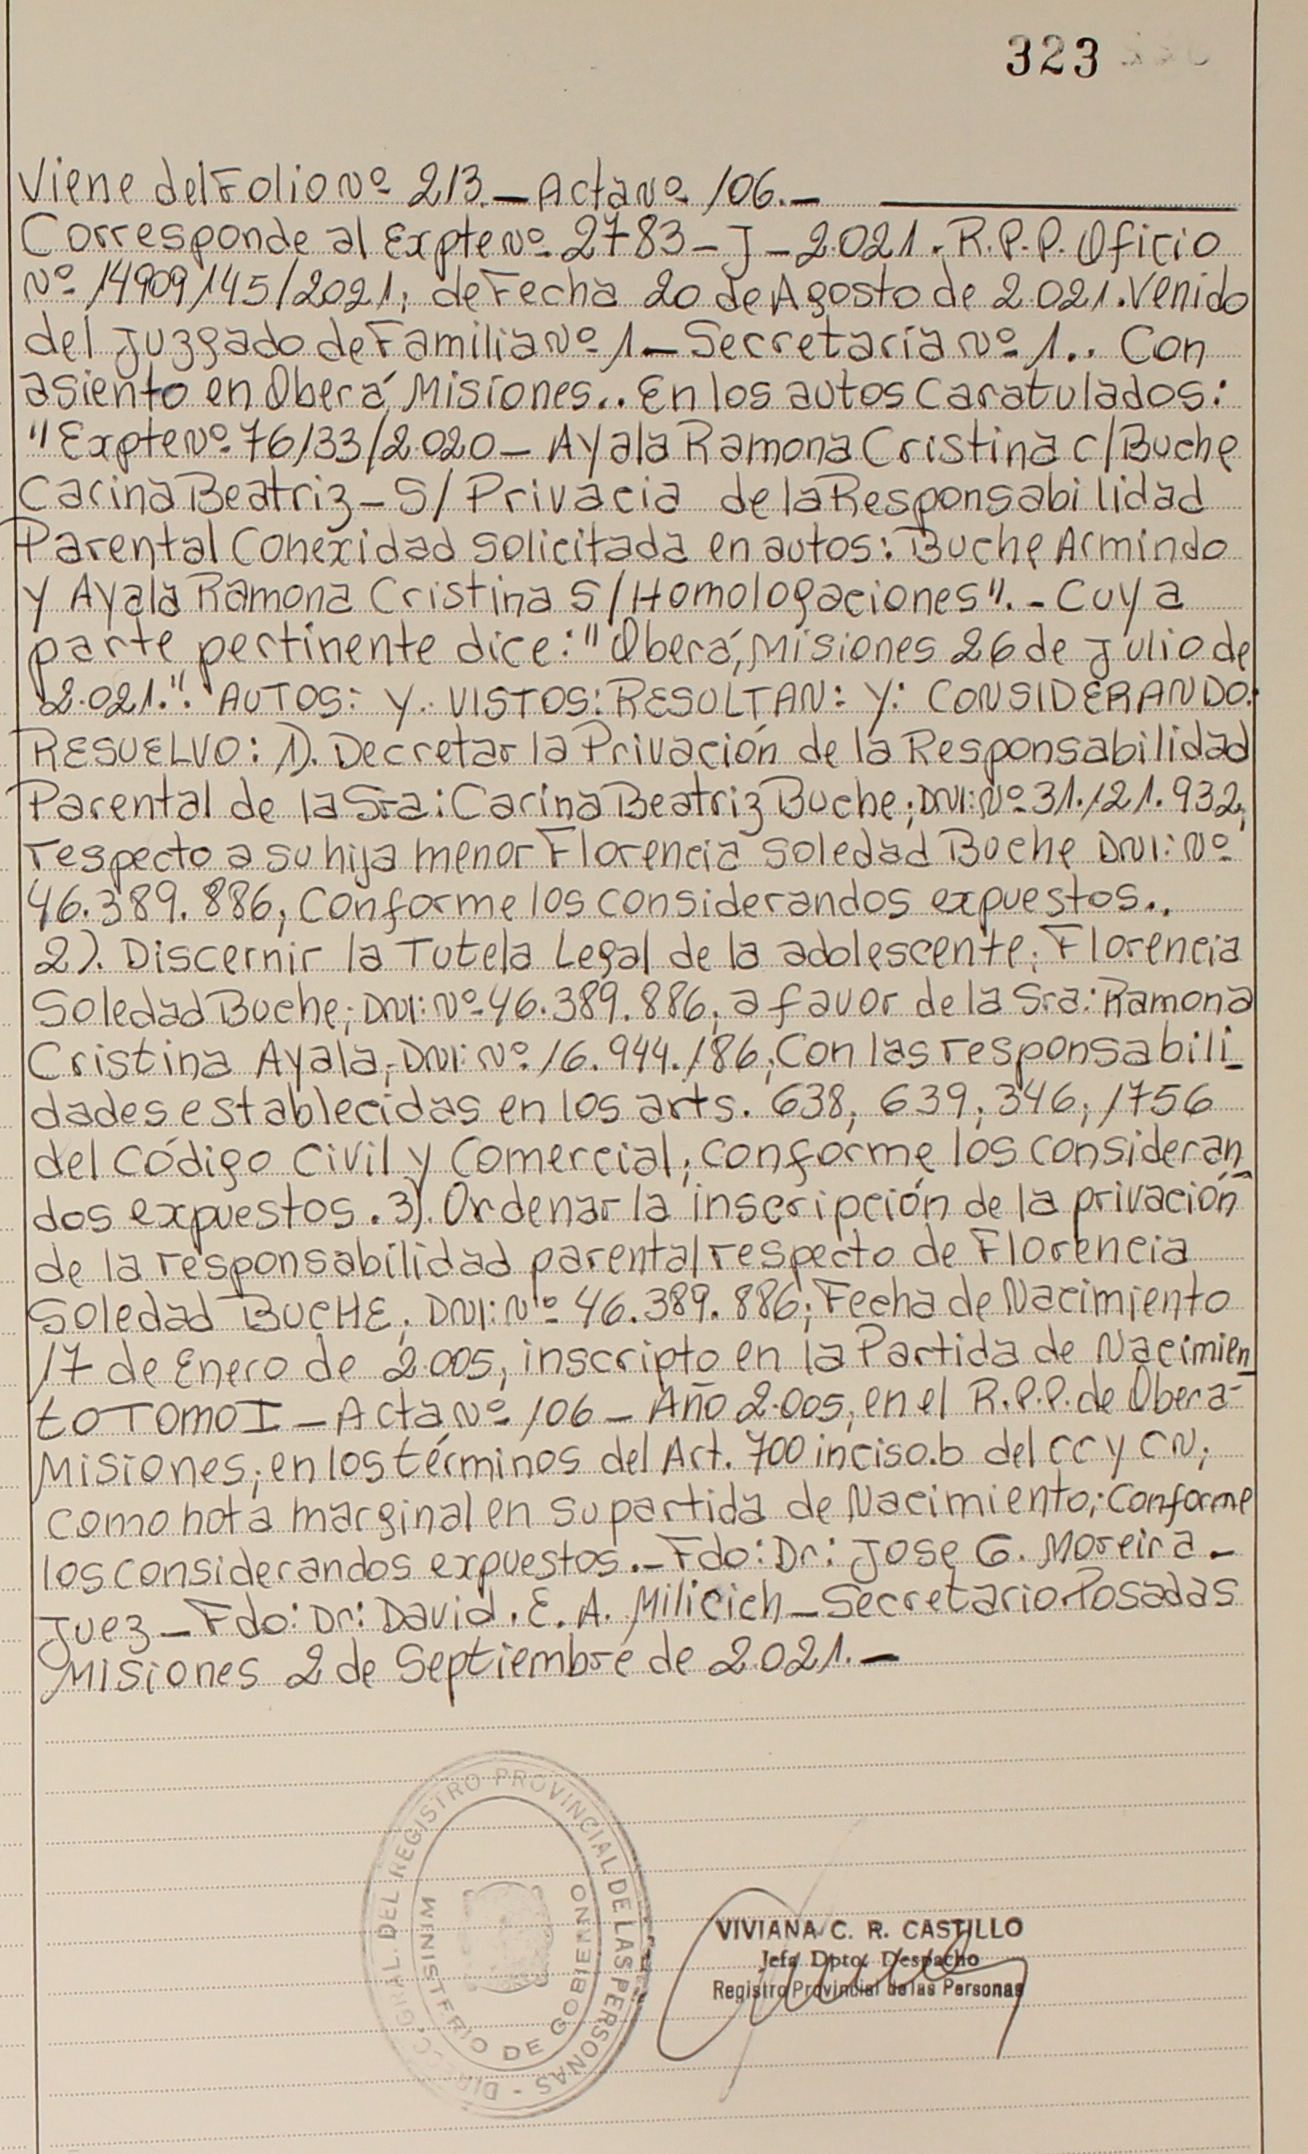 323
Viene del Folio Nº 213.- Acta Nº 106.-
Corresponde al Expte Nº 2783-J-2.021. R.P.P. Oficio
Nº 14909/145/2021; de Fecha 20 de Agosto de 2.021. Venido
del Juzgado de Familia Nº 1.- Secretaría Nº 1.. Con
asiento en Oberá, Misiones.. En los autos Caratulados:
"Expte Nº 76133/2.020 - Ayala Ramona Cristina c/ Buche
Carina Beatriz - S/ Privacia de la Responsabilidad
Parental Conexidad solicitada en autos: Buche Armindo
y Ayala Ramona Cristina S/ Homologaciones". - Cuya
parte pertinente dice: "Oberá, Misiones 26 de Julio de
2.021.". AUTOS: Y. VISTOS: RESULTAN: Y: CONSIDERANDO:
RESUELVO: 1). Decretar la Privación de la Responsabilidad
Parental de la Sra: Carina Beatriz Buche; DNI: Nº 31.121.932,
respecto a su hija menor Florencia Soledad Buche DNI: Nº
46.389.886, Conforme los considerandos expuestos..
2). Discernir la Tutela Legal de la adolescente; Florencia
Soledad Buche; DNI: Nº 46.389.886, a favor de la Sra: Ramona
Cristina Ayala; DNI: Nº 16.944.186, Con las responsabili_
dades establecidas en los arts. 638, 639, 346, 1756
del Código Civil y Comercial, conforme los consideran_
dos expuestos. 3). Ordenar la inscripción de la privación
de la responsabilidad parental respecto de Florencia
Soledad BUCHE, DNI: Nº 46.389.886; Fecha de Nacimiento
17 de Enero de 2.005, inscripto en la Partida de Nacimien_
to TOMO I - Acta Nº 106 - Año 2.005, en el R.P.P. de Oberá-
Misiones; en los términos del Art. 700 inciso.b del CC y CN;
como nota marginal en su partida de Nacimiento; Conforme
los considerandos expuestos.- Fdo: Dr: Jose G. Moreira -
Juez - Fdo: Dr: David. E. A. Milicich - Secretario. Posadas
Misiones 2 de Septiembre de 2.021.-
DIRECC. GRAL. DEL REGISTRO PROVINCIAL DE LAS PERSONAS -
MINISTERIO DE GOBIERNO
VIVIANA C. R. CASTILLO
Jefa Dpto. Despacho
Registro Provincial de las Personas